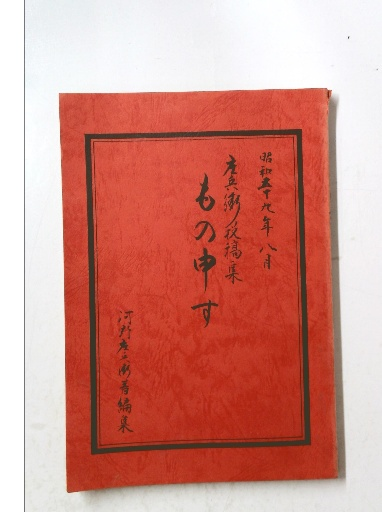 昭和五十九年八月
彦兵衛投稿集
もの申す
河野彦兵衛著編集